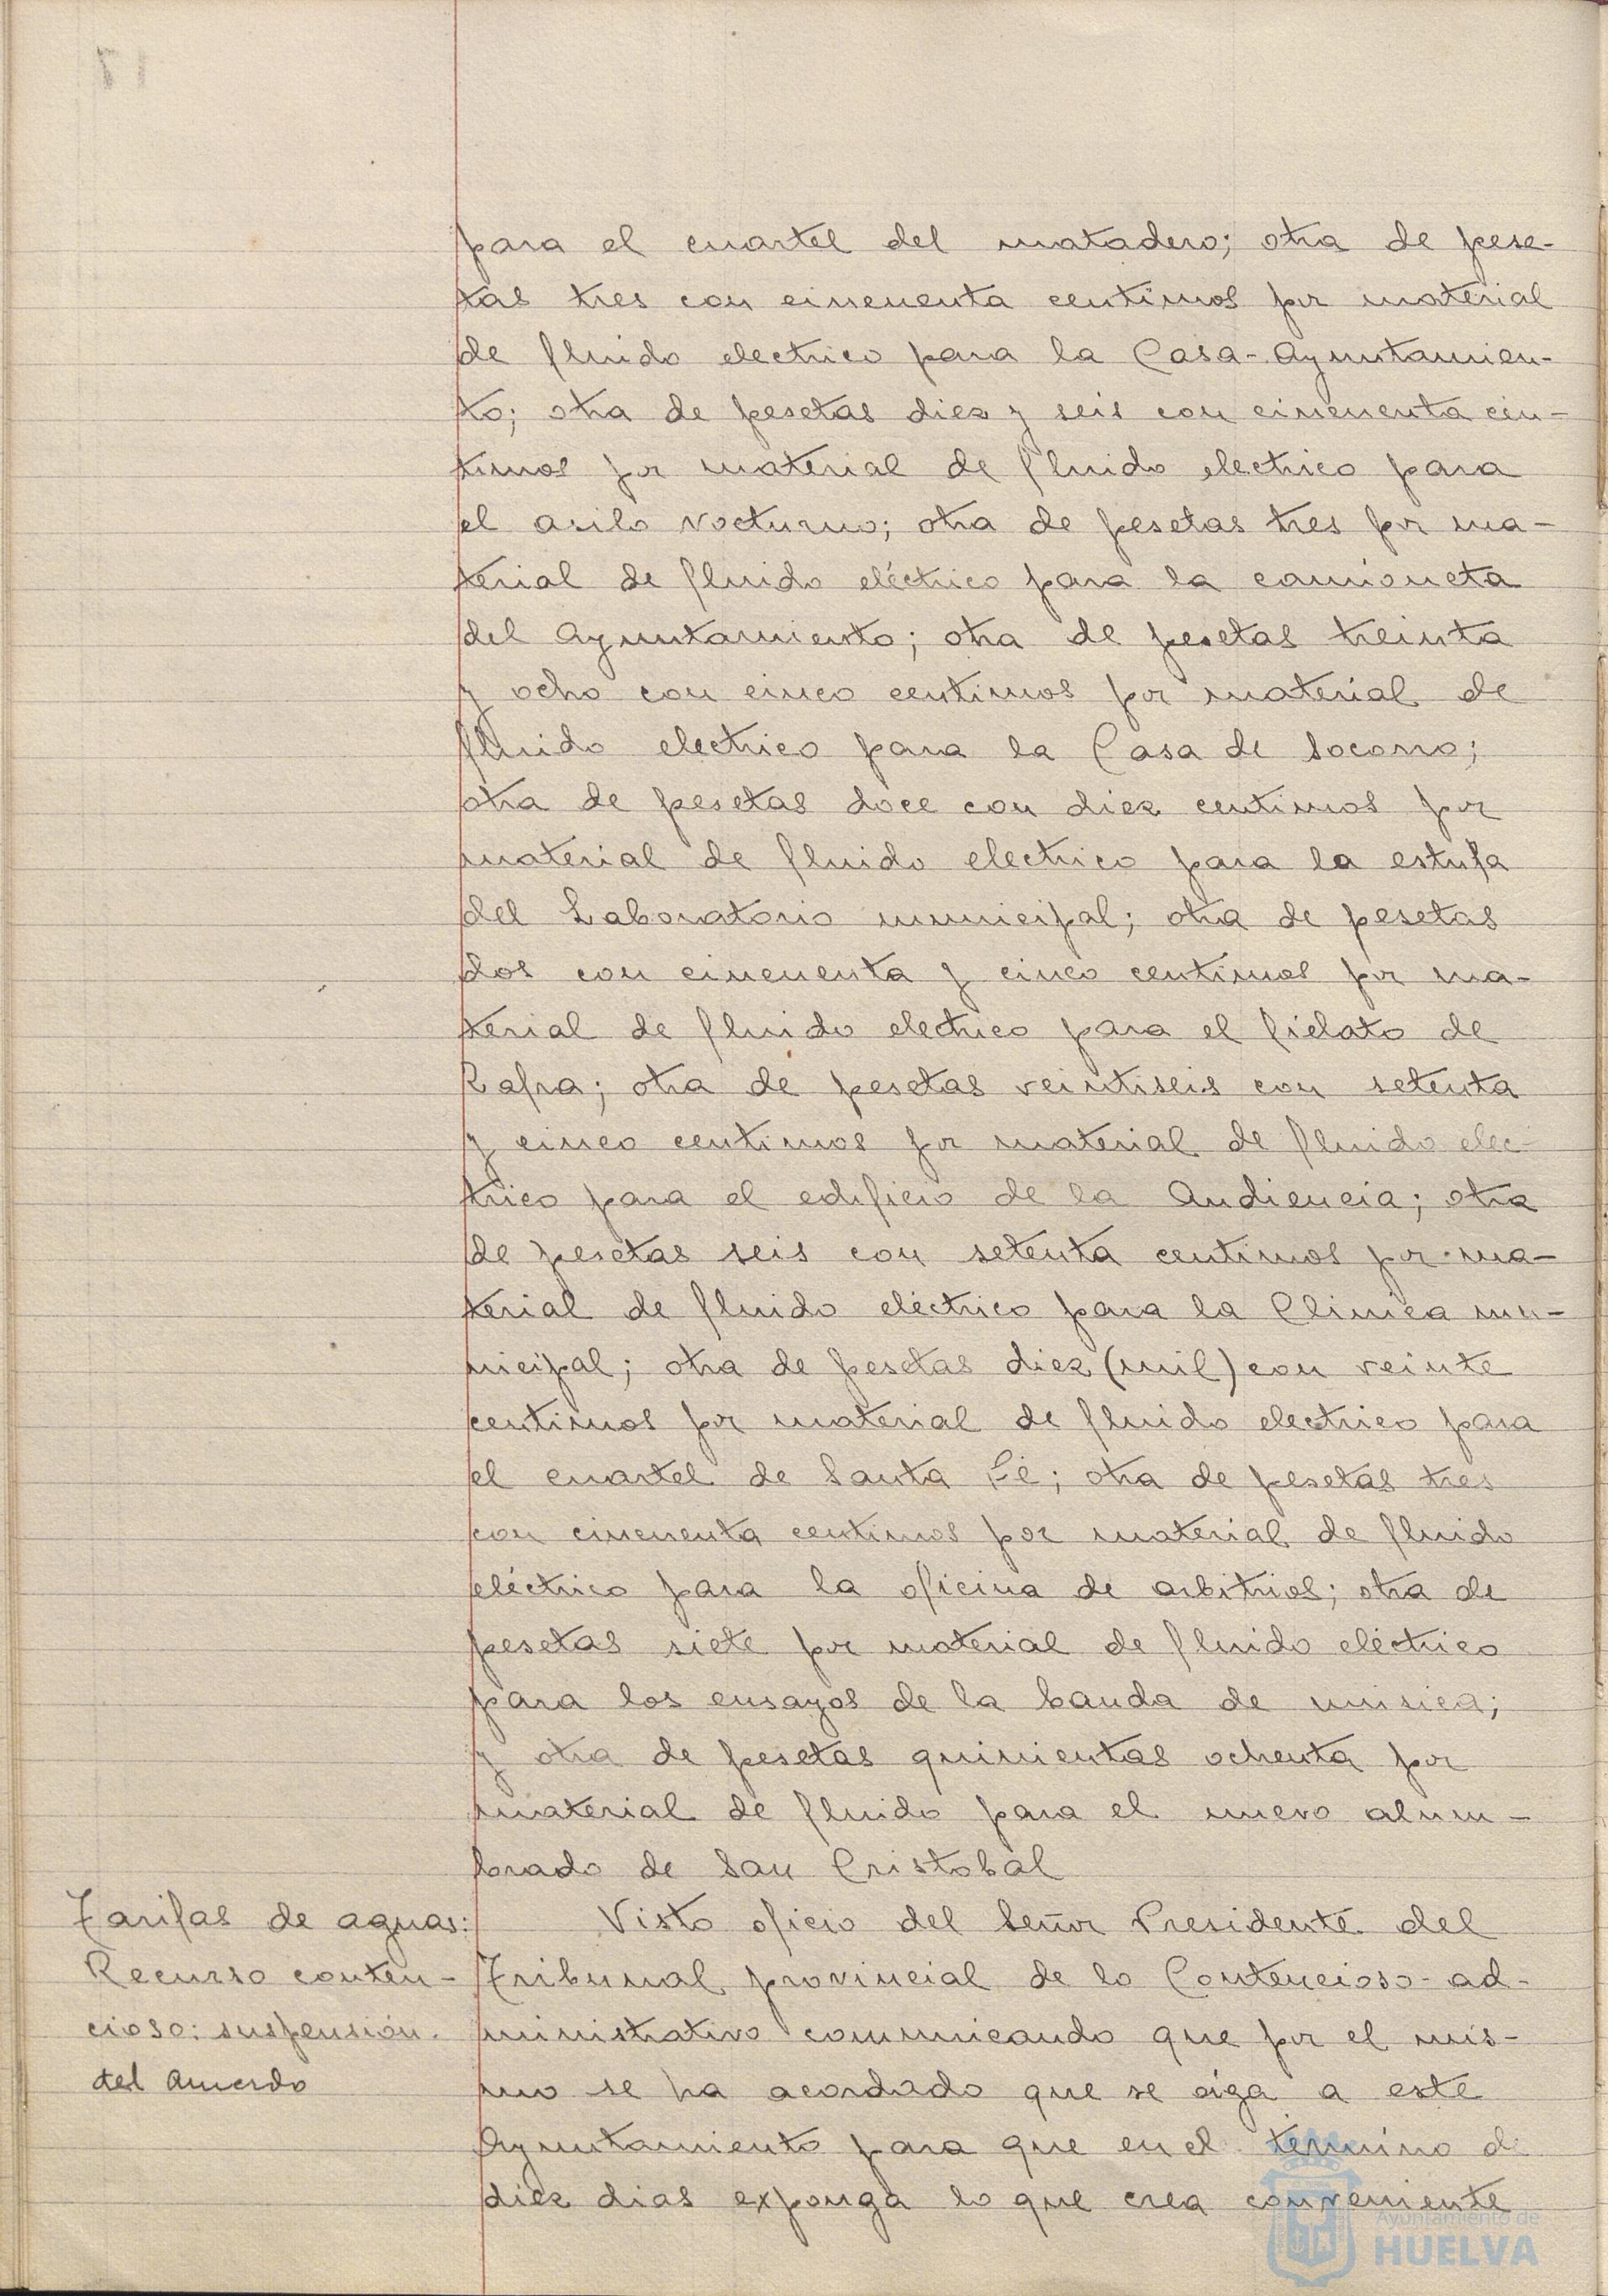 para el cuartel del matadero; otra de pese-
tas tres con cincuenta centimos por material
de fluido electrico para la Casa-Ayuntamien-
to; otra de pesetas diez y seis con cincuenta cen-
timos por material de fluido electrico para
el asilo nocturno; otra de pesetas tres por ma-
terial de fluido eléctrico para la camioneta
del Ayuntamiento; otra de pesetas treinta
y ocho con cinco centimos por material de
fluido electrico para la Casa de Socorro;
otra de pesetas doce con diez centimos por
material de fluido electrico para la estufa
del Laboratorio municipal; otra de pesetas
dos con cincuenta y cinco centimos por ma-
terial de fluido electrico para el fielato de
Zafra; otra de pesetas veintiseis con setenta
y cinco centimos por material de fluido elec-
trico para el edificio de la Audiencia; otra
de pesetas seis con setenta centimos por ma-
terial de fluido eléctrico para la Clinica mu-
nicipal; otra de pesetas diez (mil) con veinte
centimos por material de fluido electrico para
el cuartel de Santa Fé; otra de pesetas tres
con cincuenta centimos por material de fluido
eléctrico para la oficina de arbitrios; otra de
pesetas siete por material de fluido eléctrico
para los ensayos de la banda de musica;
y otra de pesetas quinientas ochenta por
material de fluido para el nuevo alum-
brado de San Cristobal
Tarifas de aguas:
Recurso conten-
cioso: suspensión
del Acuerdo
Visto oficio del Señor Presidente del
Tribunal provincial de lo Contencioso-ad-
ministrativo comunicando que por el mis-
mo se ha acordado que se oiga a este
Ayuntamiento para que en el término de
diez dias exponga lo que crea conveniente
Ayuntamiento de
HUELVA
17